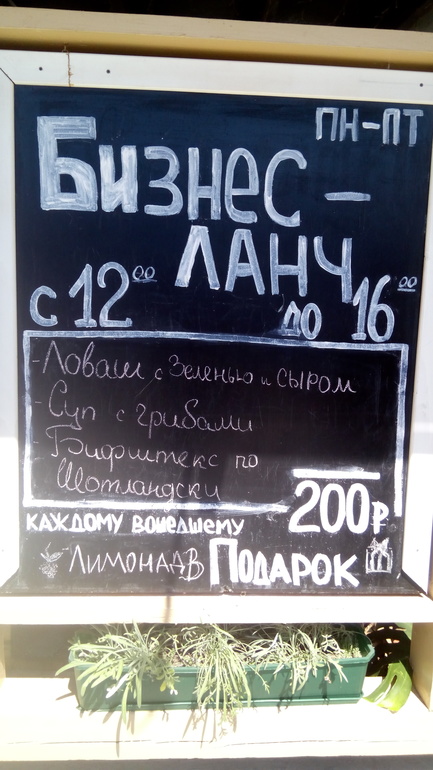 ПН-ПТ
Бизнес-
ЛАНЧ
с 12⁰⁰ до 16⁰⁰
- Ловаш с Зеленью и СЫРОМ
- Суп с грибами
- Бифштекс по
Шотландски
200₽
КАЖДОМУ ВОШЕДШЕМУ
ЛИМОНАД В ПОДАРОК